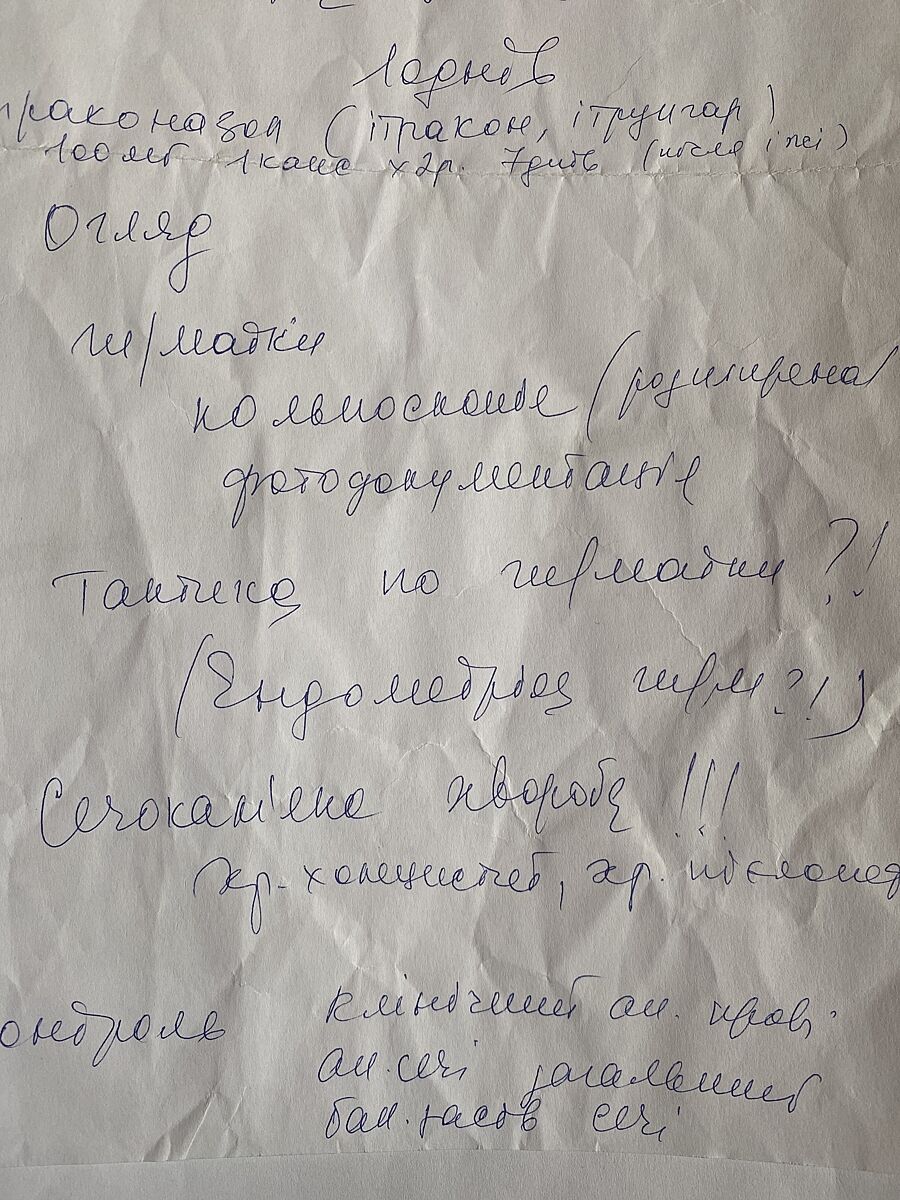 10 днів
траконазол (ітракон, ітрунгар)
100 мг 1 капс х 2р. 7 днів (після їжі)
Огляд
ш/матки
кольпоскопія (розширена)
фотодокументація
Тактика по ш/матки ?!
(Ендометріоз ш/м ?!)
Сечокам'яна хвороба !!!
хр. холецистит, хр. пієлонеф
онтроль клінічний ан. крові.
ан. сечі загальний
бак. посів сечі